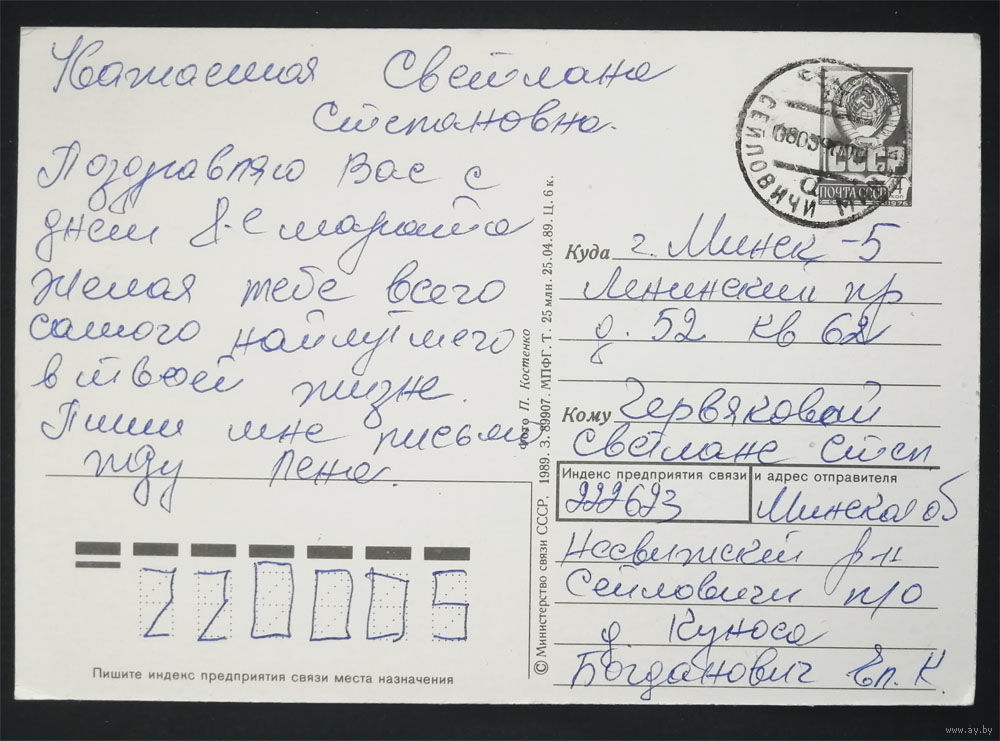 Уважаемая Светлана
Степановна.
Поздравляю Вас с
днем 8-е марта
Желая тебе всего
самого найлутшего
в твоей жизне.
Пиши мне письма
жду Лена.
ПОЧТА СССР
1976
СЕЙЛОВИЧИ
Куда г. Минск-5
Ленинский пр
д. 52 кв 62
Кому Червяковой
Светлане Степ
Индекс предприятия связи и адрес отправителя
222623 Минская об
Несвижский р-н
Сейловичи п/о
д Куноса
Богданович Ел. К.
Фото П. Костенко
© Министерство связи СССР. 1989. З. 89907. МПФГ. Т. 25 млн. 25.04.89. Ц. 6 к.
220005
Пишите индекс предприятия связи места назначения
www.ay.by